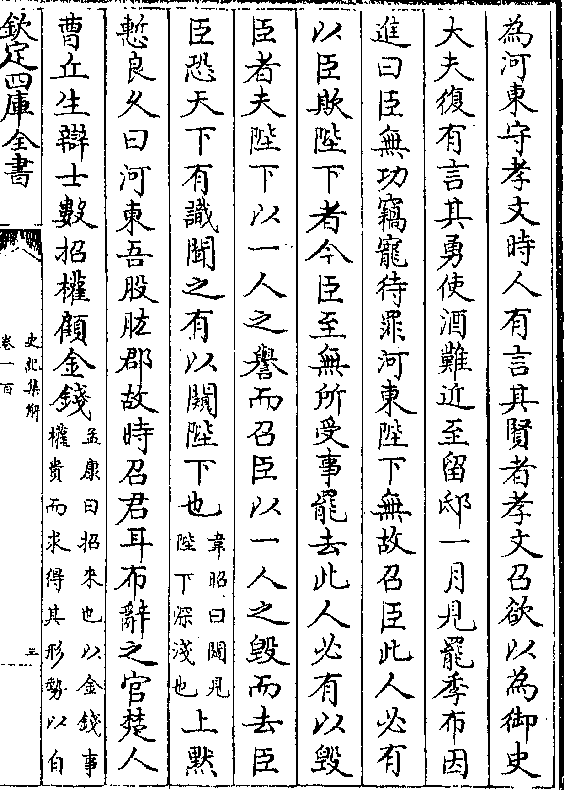 為河東守孝文時人有言其賢者孝文召欲以為御史
大夫復有言其勇使酒難近至留邸一月見罷季布因
進曰臣無功竊寵待罪河東陛下無故召臣此人必有
以臣欺陛下者今臣至無所受事罷去此人必有以毀
臣者夫陛下以一人之譽而召臣以一人之毀而去臣
臣恐天下有識聞之有以闚陛下也韋昭曰闚見陛下深淺也上黙
慙良久曰河東吾股肱郡故時召君耳布辭之官楚人
曹丘生辯士數招權顧金錢孟康曰招來也以金錢事權貴而求得其形勢以自
欽定四庫全書
史記集解
卷一百
三